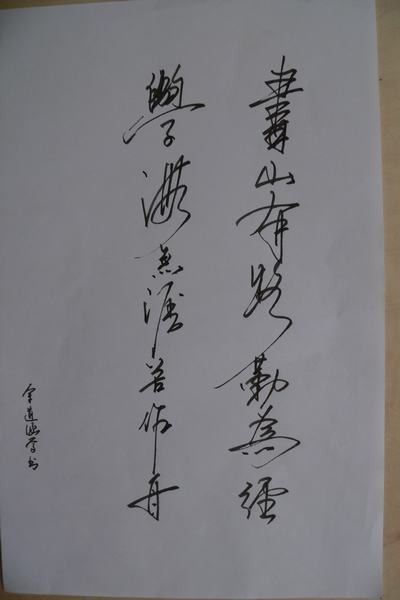 書山有路勤為經
學海無涯苦作舟